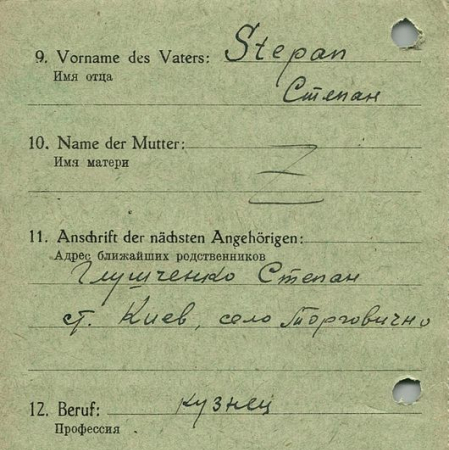 9. Vorname des Vaters: Stepan
Имя отца
Степан
10. Name der Mutter:
Имя матери
11. Anschrift der nächsten Angehörigen:
Адрес ближайших родственников
Глушченко Степан
ст. Киев, село Торговично
12. Beruf: кузнец
Профессия